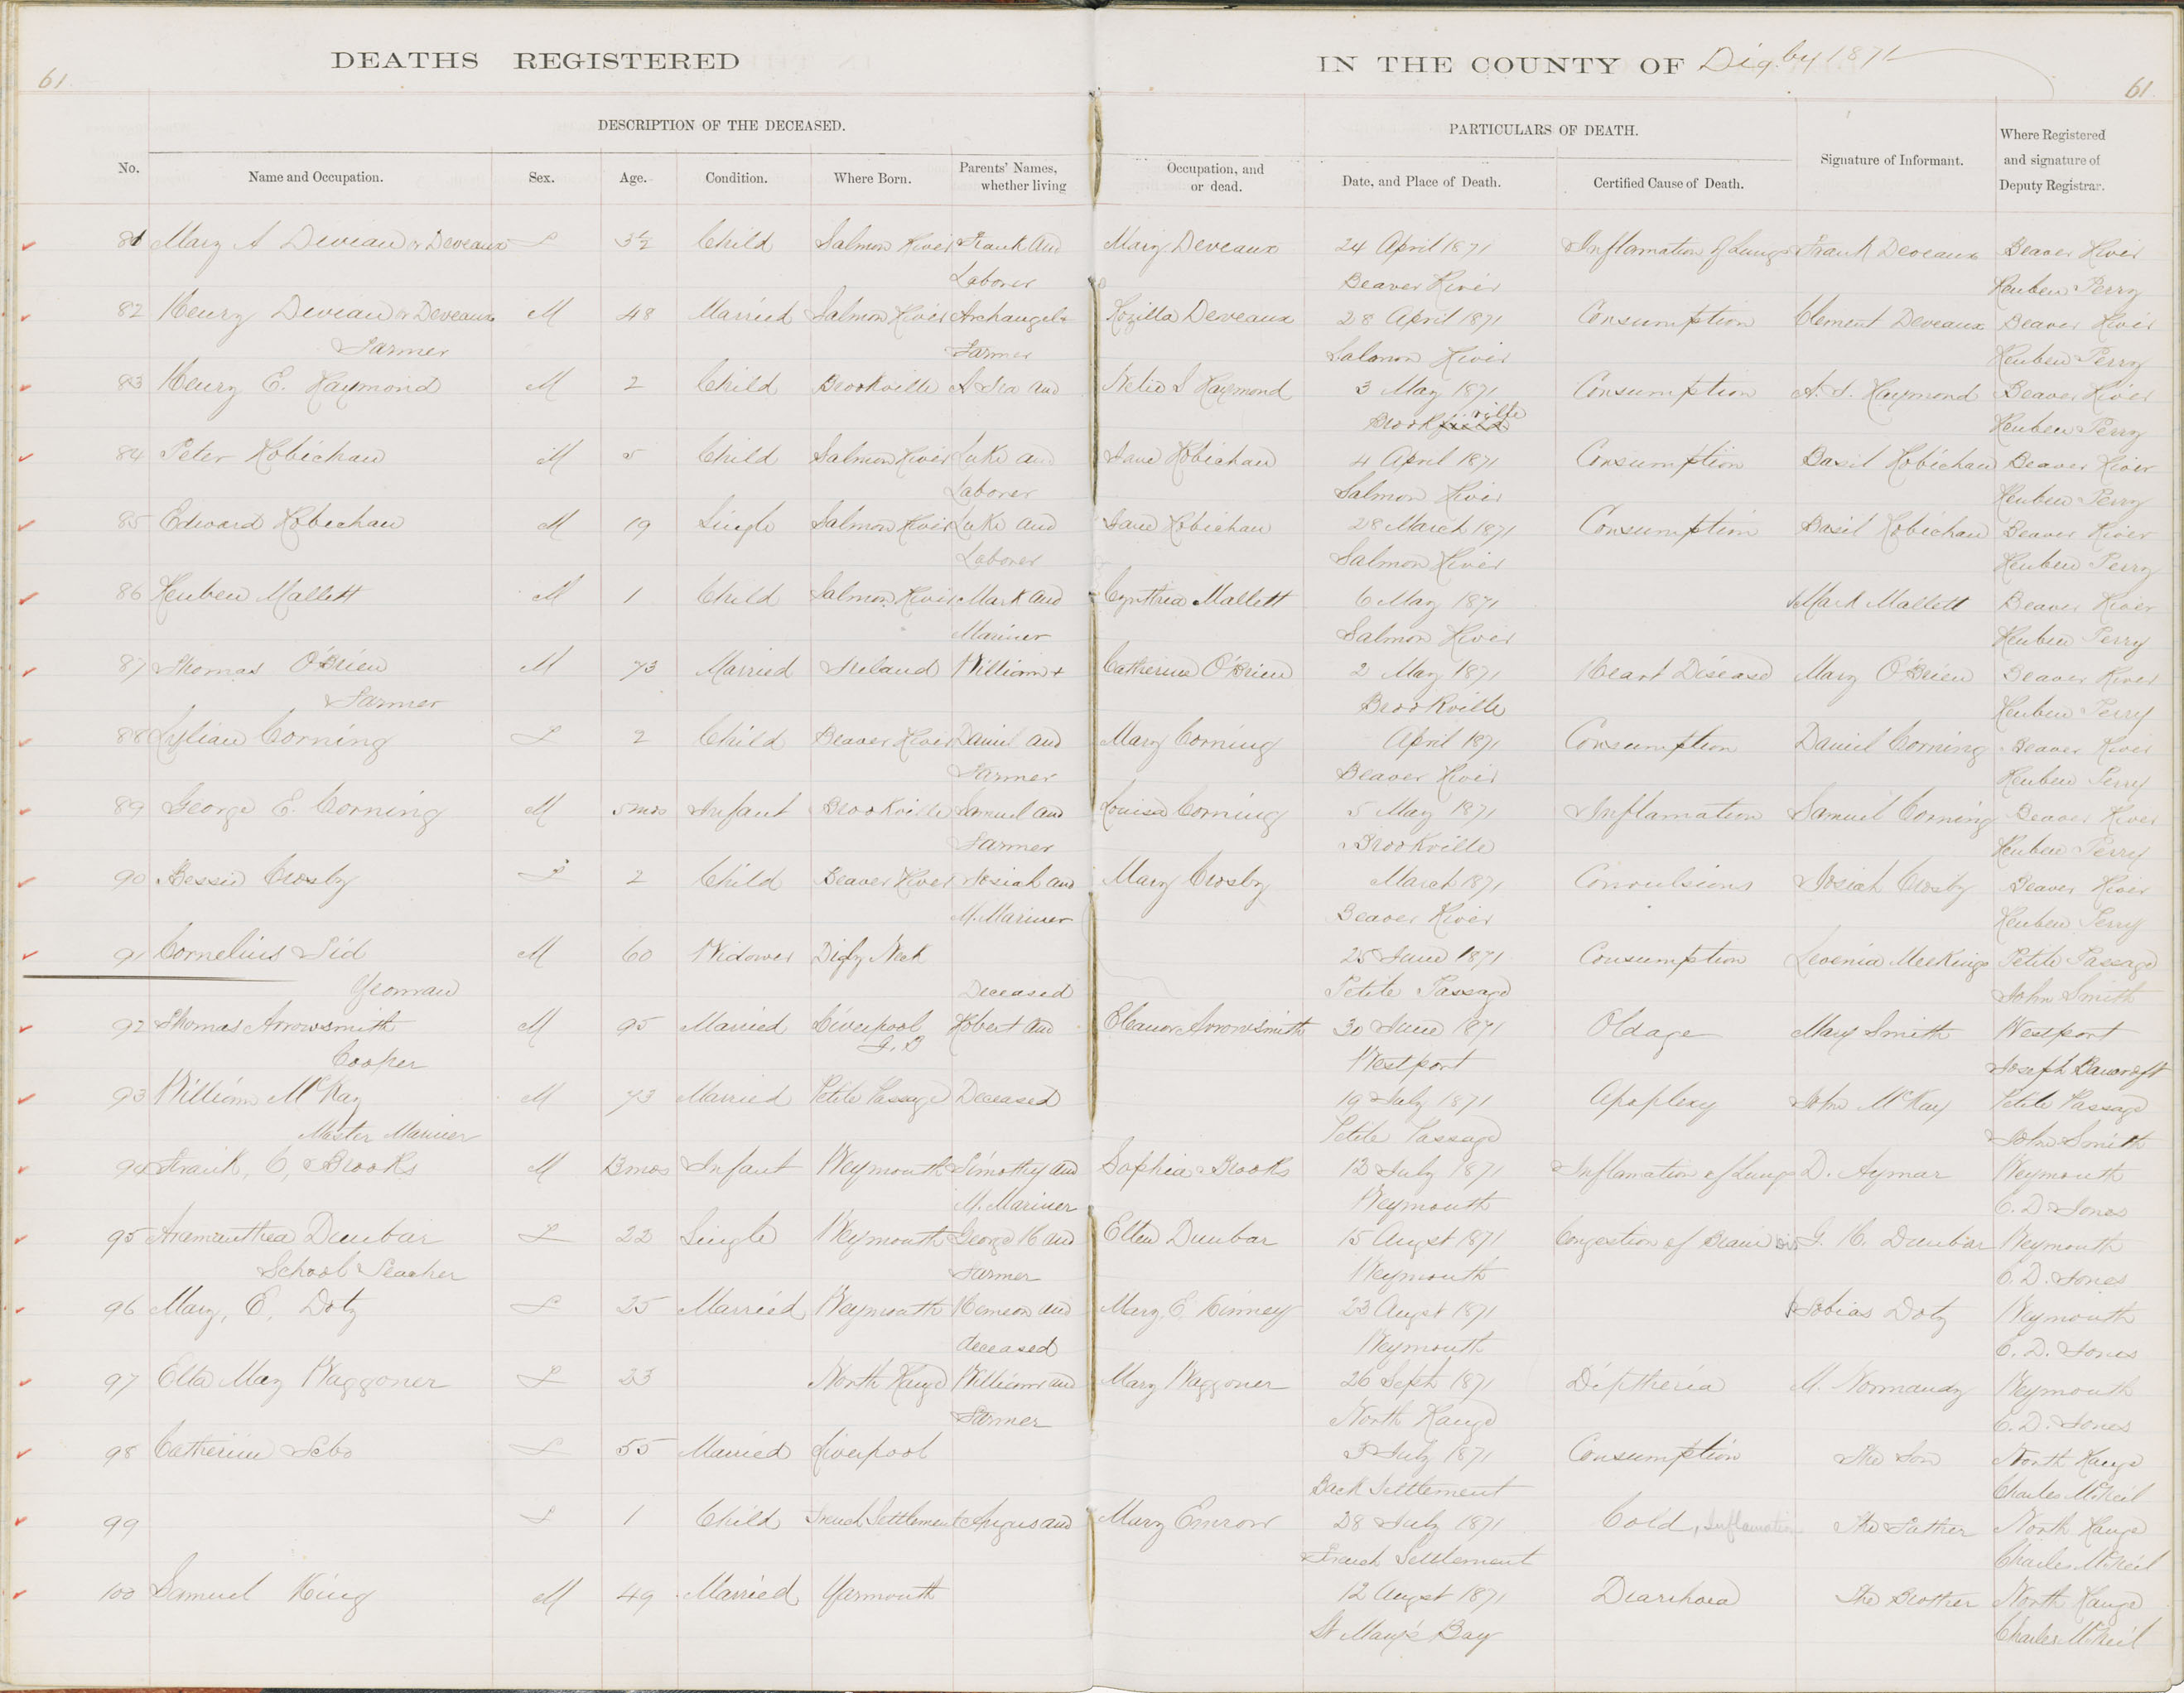 DEATHS REGISTERED IN THE COUNTY OF Digby 1871
61 61
DESCRIPTION OF THE DECEASED. PARTICULARS OF DEATH.
No. Name and Occupation. Sex. Age. Condition. Where Born. Parents' Names, whether living Occupation, and or dead. Date, and Place of Death. Certified Cause of Death. Signature of Informant. Where Registered and signature of Deputy Registrar.
81 Mary A Deviau or Deveaux F 3½ Child Salmon River Frank and Mary Deveaux 24 April 1871 Inflamation of Lungs Frank Deveaux Beaver River
Laborer Beaver River Reuben Perry
82 Henry Deviau or Deveaux M 48 Married Salmon River Archangel + Rozilla Deveaux 28 April 1871 Consumption Clement Deveaux Beaver River
Farmer Farmer Salmon River Reuben Perry
83 Henry E. Raymond M 2 Child Brookville A Ira and Netie S Raymond 3 May 1871 Consumption A. I. Raymond Beaver River
Brookville Reuben Perry
84 Peter Robichau M 5 Child Salmon River Luke and Jane Robichau 4 April 1871 Consumption Basil Robichau Beaver River
Laborer Salmon River Reuben Perry
85 Edward Robichau M 19 Single Salmon River Luke and Jane Robichau 28 March 1871 Consumption Basil Robichau Beaver River
Laborer Salmon River Reuben Perry
86 Reuben Mallett M 1 Child Salmon River Mark and Cynthia Mallett 6 May 1871 Mark Mallett Beaver River
Mariner Salmon River Reuben Perry
87 Thomas O'Brien M 73 Married Ireland William + Catherine O'Brien 2 May 1871 Heart Disease Mary O'Brien Beaver River
Farmer Brookville Reuben Perry
88 Lylian Corning F 2 Child Beaver River Daniel and Mary Corning April 1871 Consumption Daniel Corning Beaver River
Farmer Beaver River Reuben Perry
89 George E. Corning M 5 mos Infant Brookville Samuel and Louisa Corning 5 May 1871 Inflamation Samuel Corning Beaver River
Farmer Brookville Reuben Perry
90 Bessie Crosby F 2 Child Beaver River Josiah and Mary Crosby March 1871 Convulsions Josiah Crosby Beaver River
M. Mariner Beaver River Reuben Perry
91 Cornelius Tid M 60 Widower Digby Neck 25 June 1871 Consumption Levenia MeeKings Petite Passage
Yeoman Deceased Petite Passage John Smith
92 Thomas Arrowsmith M 95 Married Liverpool Robert and Eleanor Arrowsmith 30 June 1871 Old age Mary Smith Westport
Cooper G. B Westport Joseph Bancroft
93 William McKay M 73 Married Petite Passage Deceased 19 July 1871 Apoplexy John McKay Petite Passage
Master Mariner Petite Passage John Smith
94 Frank, C, Brooks M 13 mos Infant Weymouth Timothy and Sophia Brooks 13 July 1871 Inflamation of Lungs D. Aymar Weymouth
M. Mariner Weymouth C. D. Jones
95 Aramanthea Dunbar F 22 Single Weymouth George H and Ellen Dunbar 15 Augst 1871 Congestion of Brain G. H. Dunbar Weymouth
School Teacher Farmer Weymouth C. D. Jones
96 Mary, E, Doty F 25 Married Weymouth Hemeon and Mary E. Kinney 23 Augst 1871 Tobias Doty Weymouth
deceased Weymouth C. D. Jones
97 Etta May Waggoner F 23 North Range William and Mary Waggoner 26 Septr 1871 Diptheria M. Normandy Weymouth
Farmer North Range C. D. Jones
98 Catherine Sebo F 55 Married Liverpool 3 July 1871 Consumption The Son North Range
Back Settlement Charles McNeil
99 F 1 Child French Settlement Angus and Mary Emrow 28 July 1871 Cold, Inflamation The Father North Range
French Settlement Charles McNeil
100 Samuel King M 49 Married Yarmouth 12 Augst 1871 Diarrhoea The Brother North Range
St Mary's Bay Charles McNeil